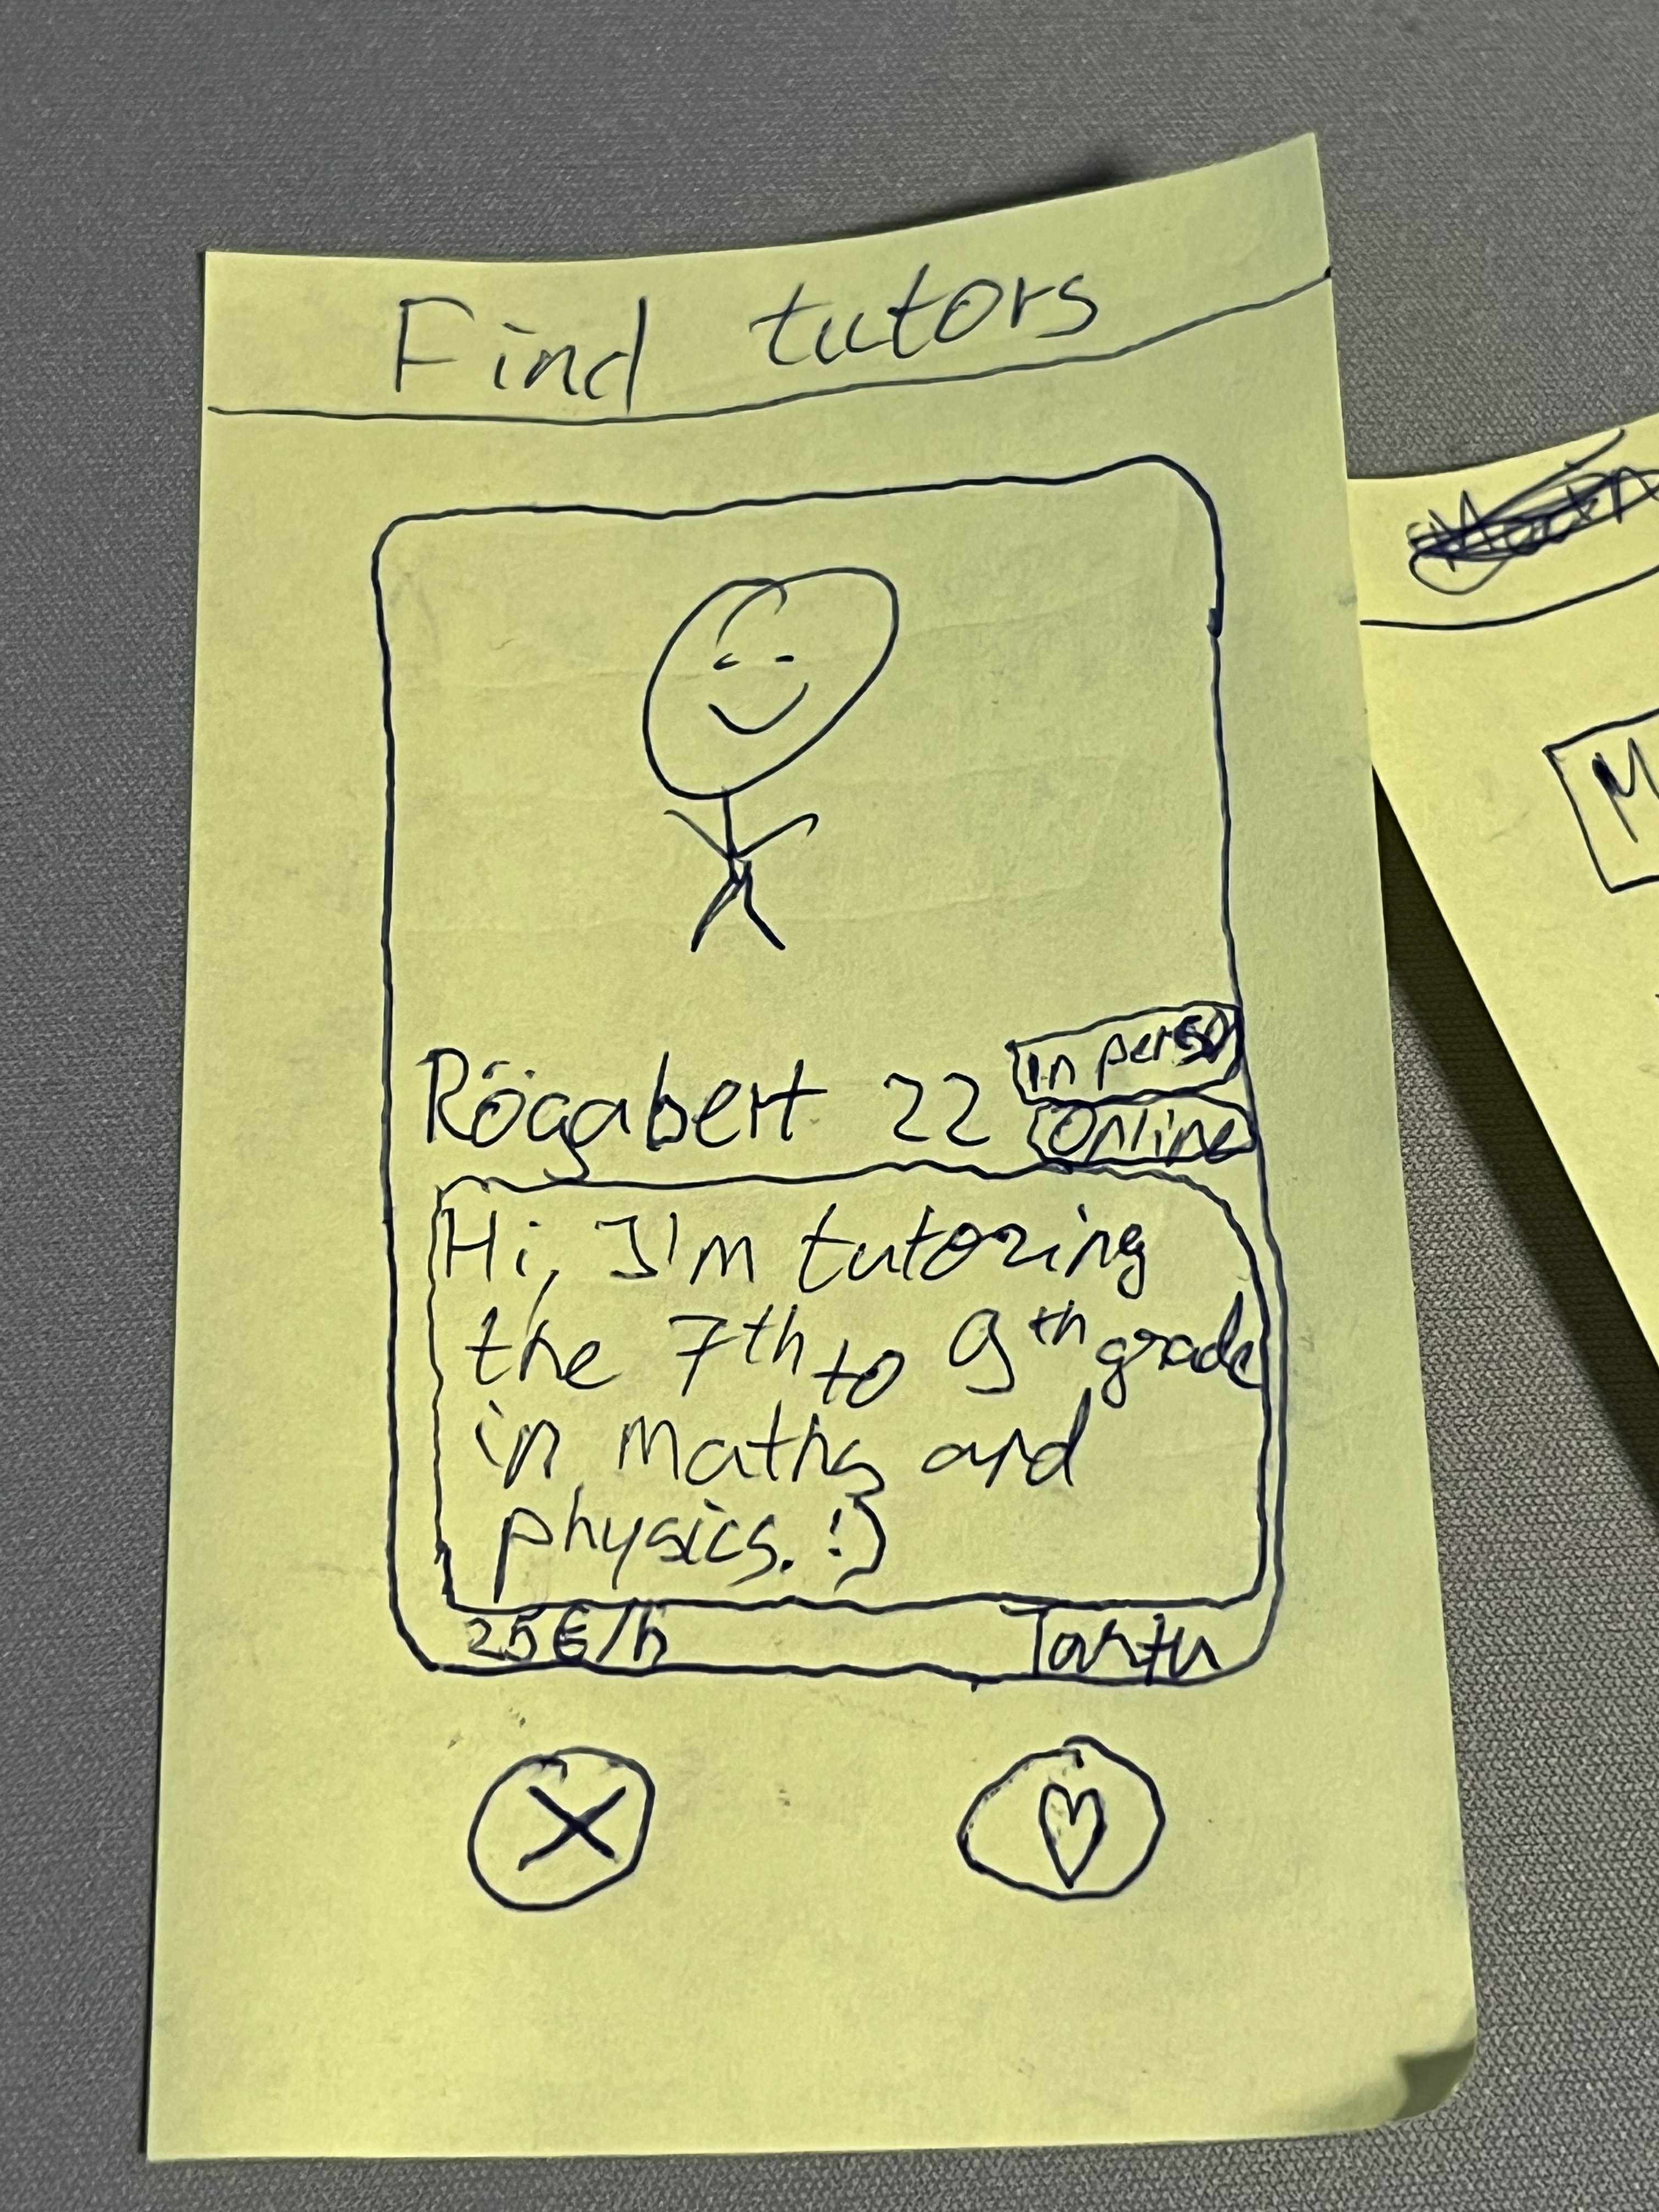 Find tutors
Rögabert 22
in perso
Online
Hi, I'm tutoring
the 7th to 9th grade
in maths and
physics. :)
25€/h Tartu
M